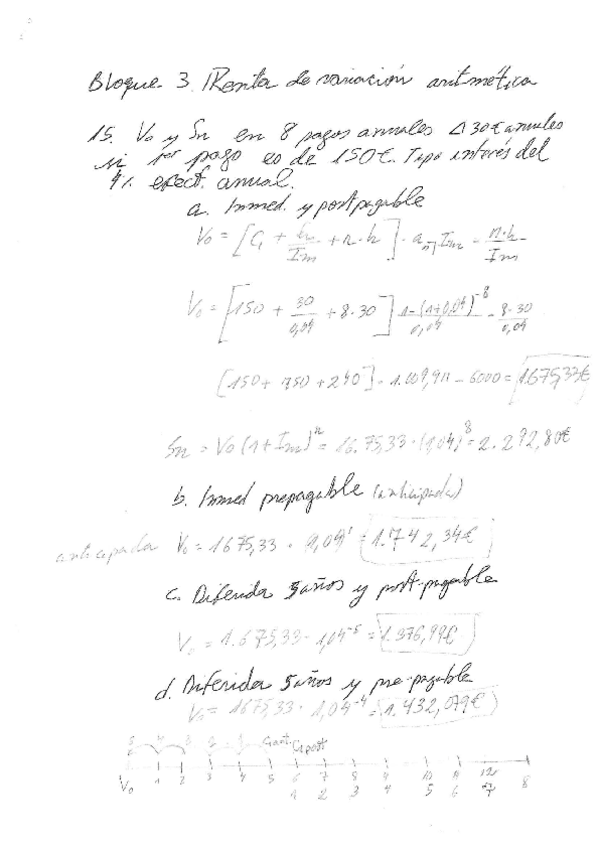 Bloque 3. Renta de variación aritmética
15. Vo y Sn en 8 pagos anuales Δ 30€ anuales
si 1er pago es de 150€. Tipo interés del
4%. efect. anual.
a. Inmed. y postpagable
Vo = [C1 + h/Im + n·h] · an┐Im - n·h/Im
Vo = [150 + 30/0,04 + 8·30] 1-(1+0,04)^-8/0,04 - 8·30/0,04
[150 + 750 + 240] - 6000 = 1675,33€
Sn = Vo(1+Im)^n = 16.75,33·(1,04)^8 = 2.292,80€
b. Inmed prepagable (anticipada)
anticipada Vo = 1675,33 · 1,04^1 = 1.742,34€
c. Diferida 5 años y post-pagable
Vo = 1.675,33 · 1,04^-5 = 1.376,99€
d. Diferida 5 años y pre-pagable
Vo = 1675,33 · 1,04^-4 = 1.432,079€
5 4 3 2 1 Cant. Cpost
Vo 1 2 3 4 5 6 7 8 9 10 11 12 8
1 2 3 4 5 6 7